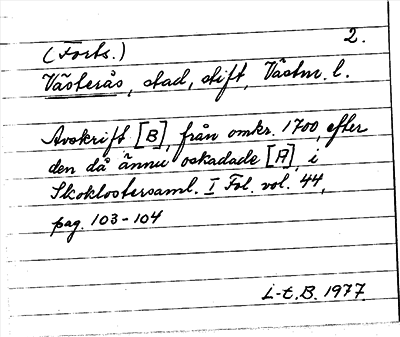 2.
(Forts.)
Västerås, stad, stift, Västm. l.
Avskrift [B], från omkr. 1700, efter
den då ännu oskadade [A], i
Skoklostersaml. I Fol. vol. 44,
pag. 103-104
L-t. B. 1977.